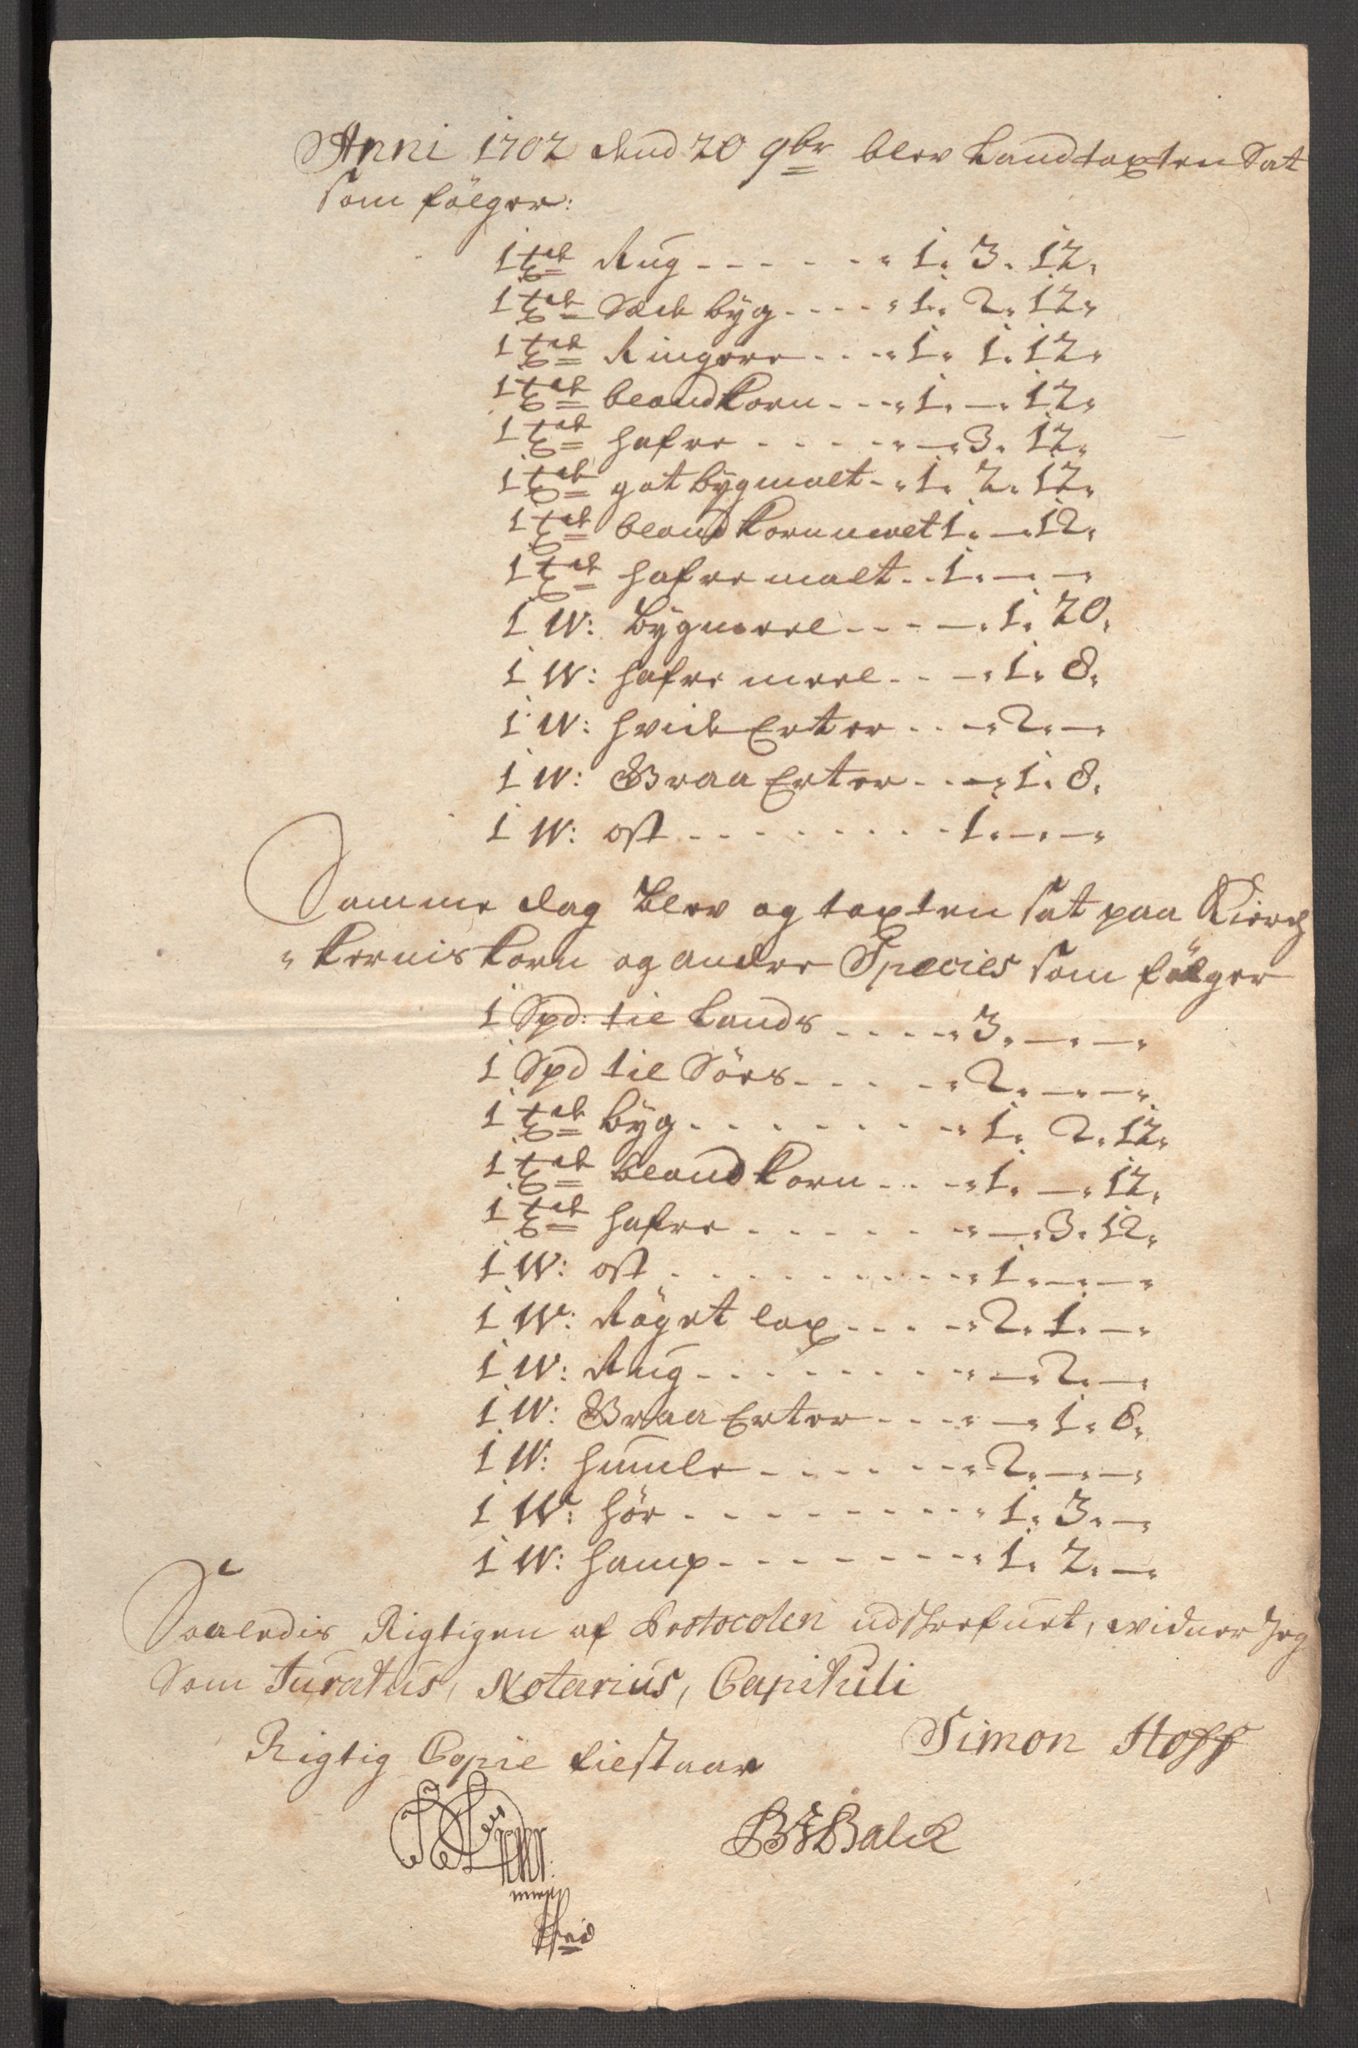 Anni 1702 dend 20 9br blev Landtaxten Sat
som følger:
1 tde Rug - - - - - 1. 3. 12.
1 tde Sæde byg - - - - 1. 2. 12.
1 tde Ringere - - - 1. 1. 12.
1 tde bland korn - - - 1. — 12.
1 tde hafre - - - - — 3. 12.
1 tde got bygmalt - 1. 2. 12.
1 tde bland korn malt 1. — 12.
1 tde hafre malt - - 1. — —
1 W: bygmeel - - - — 1. 20.
1 W: hafre meel - - — 1. 8.
1 W: hvide Erter - - — 2. —
1 W: Graa Erter - - — 1. 8.
1 W: ost - - - - - - - 1. — —
Samme dag blev og taxten sat paa Kierch
kornis korn og andre Species som følger
1 Spd: til Lands - - - - 3. — —
1 Spd til Söes - - - - 2. — —
1 tde byg - - - - - - - 1. 2. 12.
1 tde bland korn - - - 1. — 12.
1 tde hafre - - - - - - — 3. 12.
1 W: ost - - - - - - - - 1. — —
1 W: Röget lax - - - - 2. 1. —
1 W: Rug - - - - - - - — 2. —
1 W: Graa Erter - - - - — 1. 8.
1 W: humle - - - - - - 2. — —
1 W: hör - - - - - - - - 1. 3. —
1 W: hamp - - - - - - - 1. 2. —
Saaledis Rigtigen af Protocolen udskrefuet, widner Jeg
Som Juratus, Notarius, Capituli
Simon Hoff
Rigtig Copie tilstaar
Balck